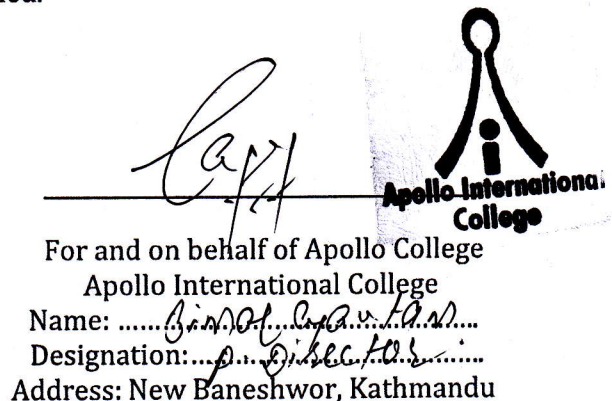 Apollo International
College
For and on behalf of Apollo College
Apollo International College
Name: ......Bimal Gautam.....
Designation:...P. Director......
Address: New Baneshwor, Kathmandu